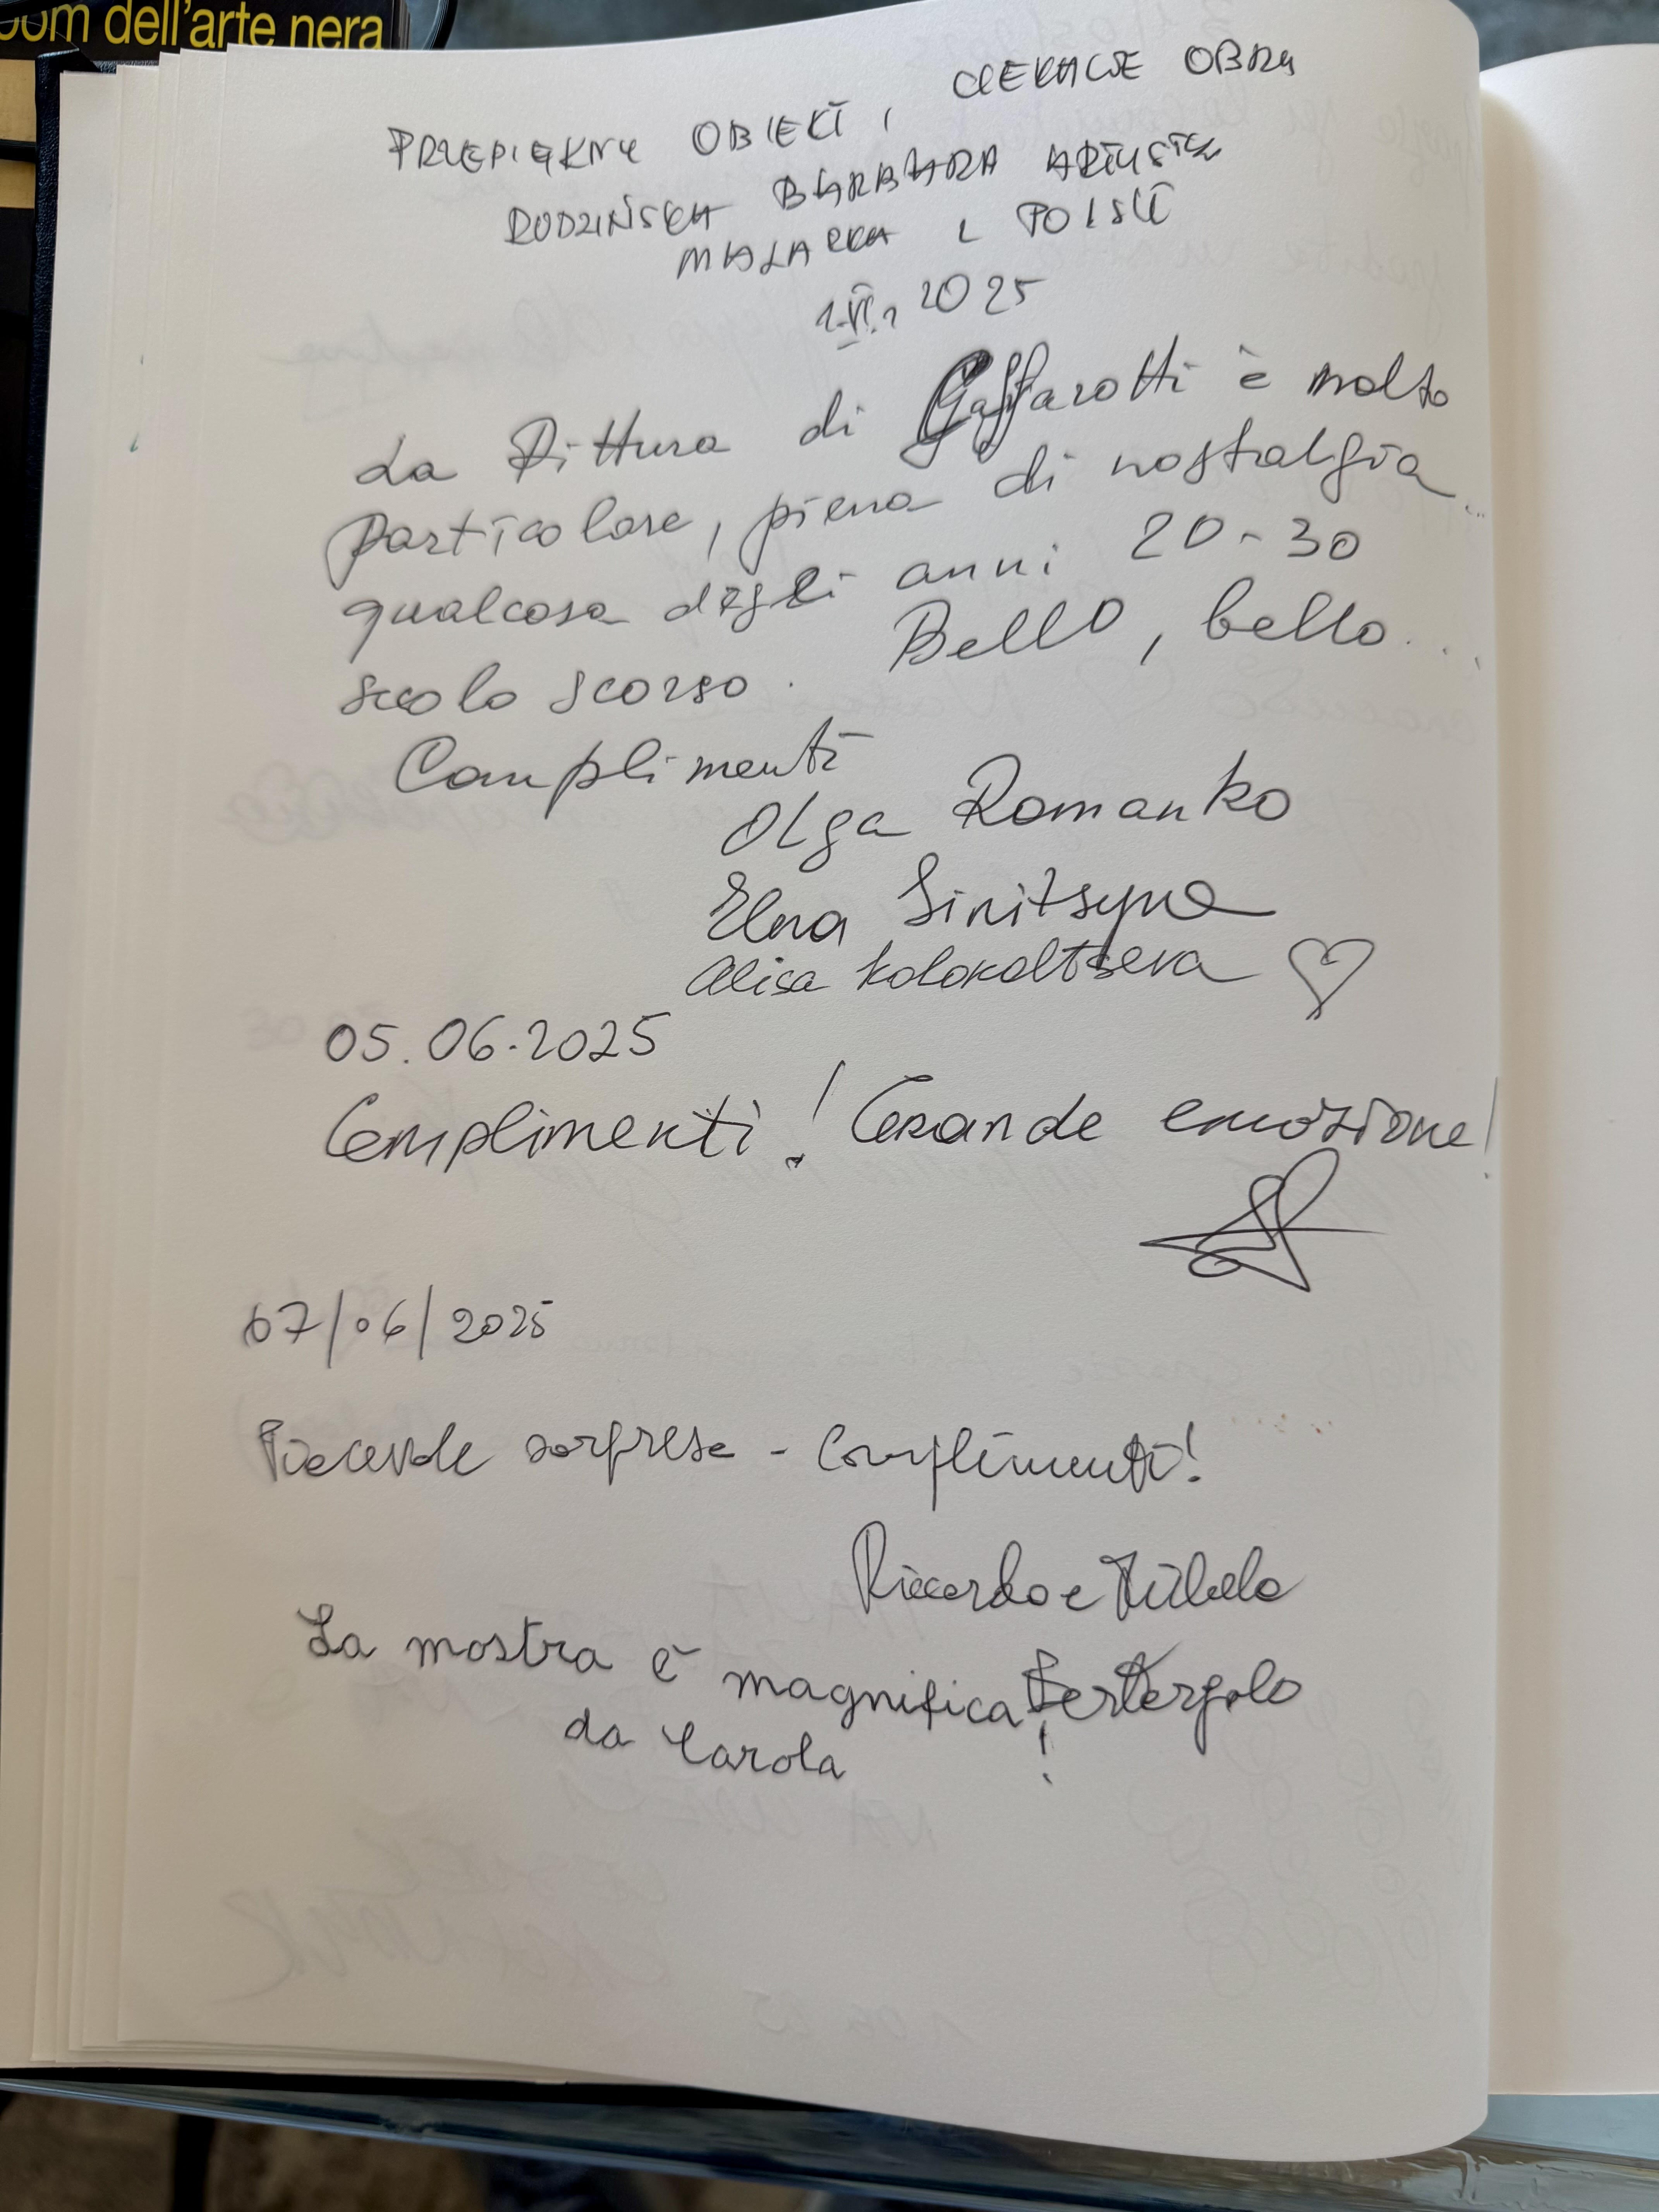 oom dell'arte nera
PRZEPIĘKNY OBIEKT, CIEKAWE OBRAZY
RODZIŃSKA BARBARA ARTYSTKA
MALARKA Z POLSKI
1.VI. 2025
La Pittura di Gaffarotti è molto
particolare, piena di nostalgia...
qualcosa degli anni 20-30
secolo scorso. Bello, bello...
Complimenti
Olga Romanko
Elena Sinitsyna
Alisa Kolokoltseva
05.06.2025
Complimenti! Grande emozione!
07/06/2025
Piacevole sorpresa - Complimenti!
Riccardo e
La mostra è magnifica!
da Carola